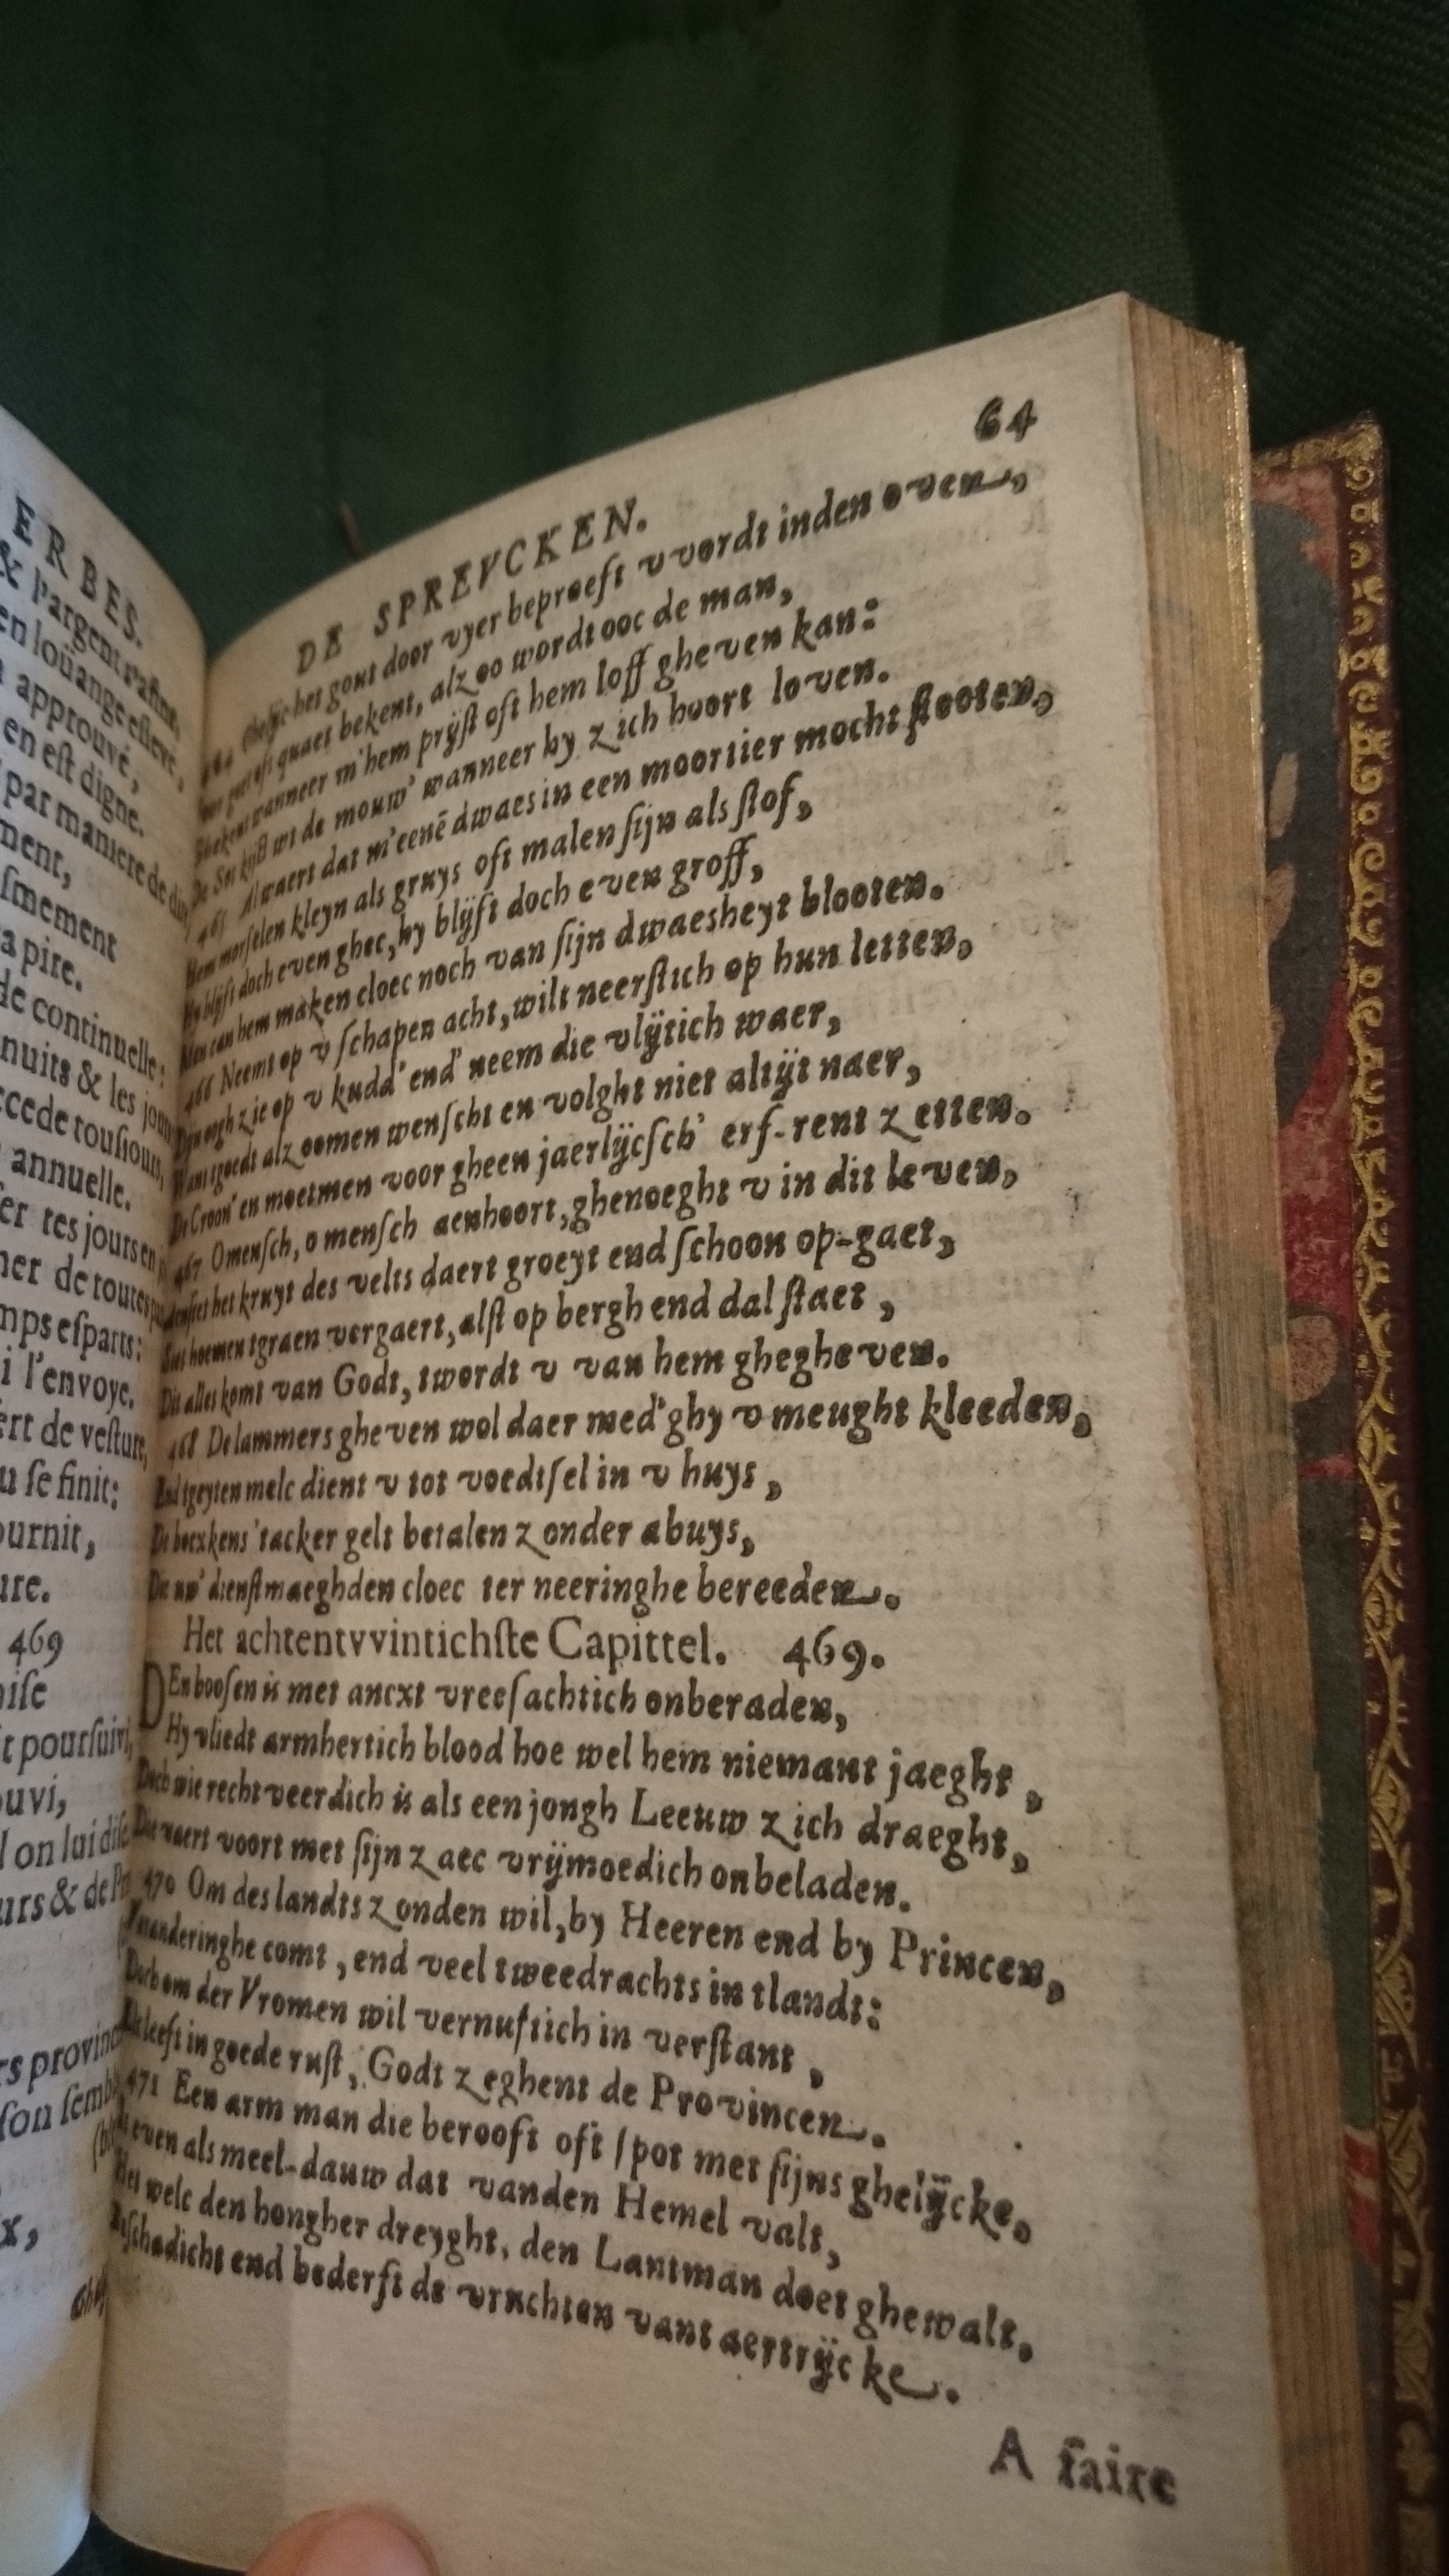 ERBES.
& l'argent rafiné,
en loüange eslevé,
approuvé,
en est digne.
par maniere de
ment,
sinement
a pire.
de continuelle:
nuits & les jours
cede tousiours,
annuelle.
er tes jours en
ner de toutes
mps esparts:
i l'envoye.
ert de vesture,
u se finit:
ournit,
ure.
469
ise
t poursuivi,
ouvi,
on lui dise
urs & de
rs provinces
son semb
x,
64
DE SPREVCKEN.
464 Ghelijc het gout door vyer beproeft vvordt inden oven,
quaet bekent, alzoo wordt ooc de man,
wanneer m'hem prijst oft hem loff gheven kan:
wt de mouw' wanneer hy zich hoort loven.
465 Alwaert dat m'eenē dwaes in een moortier mocht stooten,
Hem morselen kleyn als gruys oft malen sijn als stof,
Hy blijft doch even ghec, hy blijft doch even groff,
Men can hem maken cloec noch van sijn dwaesheyt blooten.
466 Neemt op v schapen acht, wilt neerstich op hun letten,
zie op v kudd' end' neem die vlijtich waer,
Want goedt alzoomen wenscht en volght niet altijt naer,
De Croon' en moetmen voor gheen jaerlijcsch' erf-rent zetten.
467 O mensch, o mensch aenhoort, ghenoeght v in dit leven,
het kruyt des velts daert groeyt end schoon op-gaet,
Siet hoemen tgraen vergaert, alst op bergh end dal staet,
Dit alles komt van Godt, twordt v van hem ghegheven.
468 De lammers gheven wol daer med' ghy v meught kleeden,
End tgeyten melc dient v tot voedtsel in v huys,
De bocxkens 'tacker gelt betalen zonder abuys,
Die uw' dienstmaeghden cloec ter neeringhe bereeden.
Het achtentvvintichste Capittel. 469.
DEn boosen is met ancxt vreesachtich onberaden,
Hy vliedt armhertich blood hoe wel hem niemant jaeght,
Doch wie rechtveerdich is als een jongh Leeuw zich draeght,
Die vaert voort met sijn zaec vrijmoedich onbeladen.
470 Om des landts zonden wil, by Heeren end by Princen,
Veranderinghe comt, end veel tweedrachts in tlandt:
Doch om der Vromen wil vernuftich in verstant,
leeft in goede rust, Godt zeghent de Provincen.
471 Een arm man die berooft oft spot met sijns ghelijcke,
Is even als meel-dauw dat vanden Hemel valt,
Het welc den hongher dreyght, den Lantman doet ghewalt,
Beschadicht end bederft de vruchten vant aertrijcke.
A faire